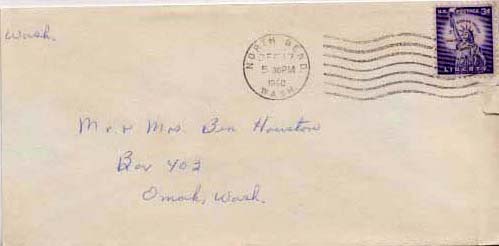 Wash.
NORTH BEND
DEC 17
5 30PM
WASH.
U.S. POSTAGE 3¢
LIBERTY
Mr. & Mrs. Ben Houston
Box 402
Omak, Wash.